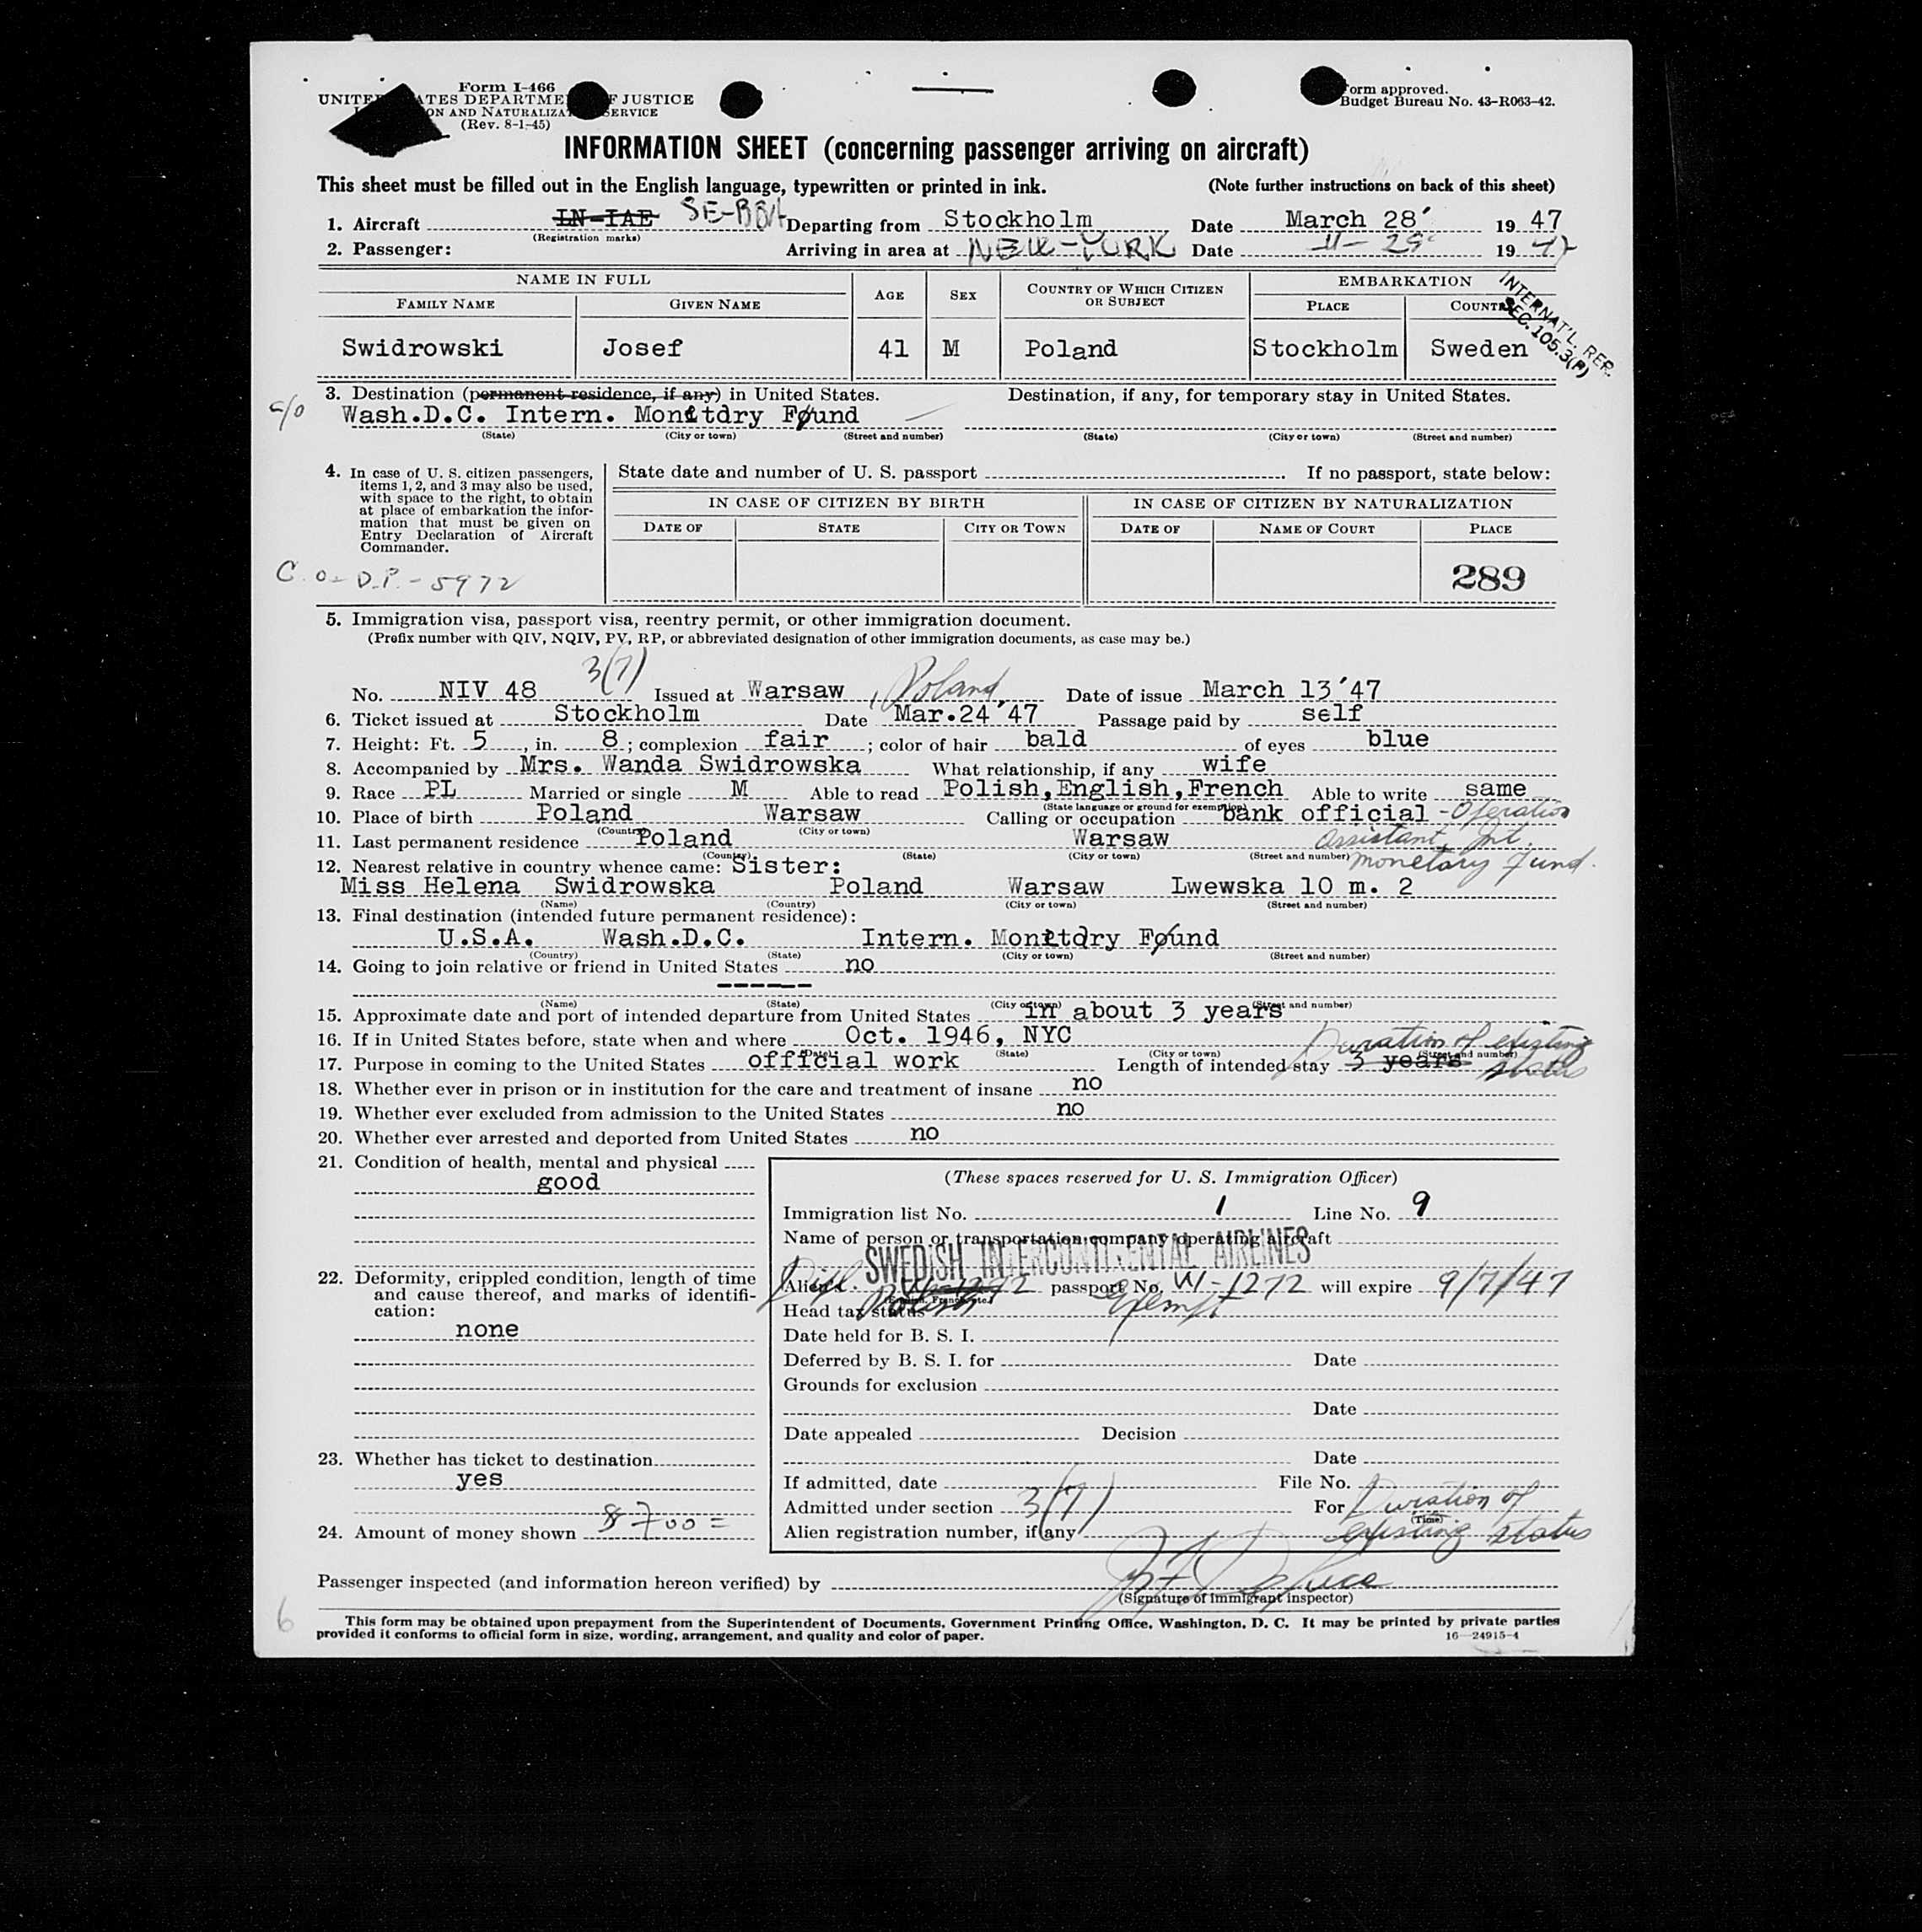 Form I-466
UNITED STATES DEPARTMENT OF JUSTICE
AND NATURALIZATION SERVICE
(Rev. 8-1-45)
Form approved.
Budget Bureau No. 43-R063-42.
INFORMATION SHEET (concerning passenger arriving on aircraft)
This sheet must be filled out in the English language, typewritten or printed in ink. (Note further instructions on back of this sheet)
1. Aircraft LN-IAE SE-BBA Departing from Stockholm Date March 28' 19 47
(Registration marks)
2. Passenger: Arriving in area at NEW-YORK Date -"- 29 19 47
NAME IN FULL EMBARKATION
FAMILY NAME GIVEN NAME AGE SEX COUNTRY OF WHICH CITIZEN OR SUBJECT PLACE COUNTRY
INTERNAT'L. REP.
SEC. 105.3(P)
Swidrowski Josef 41 M Poland Stockholm Sweden
3. Destination (permanent residence, if any) in United States. Destination, if any, for temporary stay in United States.
c/o Wash.D.C. Intern. Monetdry Found
(State) (City or town) (Street and number) (State) (City or town) (Street and number)
4. In case of U. S. citizen passengers, items 1, 2, and 3 may also be used, with space to the right, to obtain at place of embarkation the information that must be given on Entry Declaration of Aircraft Commander.
State date and number of U. S. passport If no passport, state below:
IN CASE OF CITIZEN BY BIRTH IN CASE OF CITIZEN BY NATURALIZATION
DATE OF STATE CITY OR TOWN DATE OF NAME OF COURT PLACE
C.O-D.P.-5972
289
5. Immigration visa, passport visa, reentry permit, or other immigration document.
(Prefix number with QIV, NQIV, PV, RP, or abbreviated designation of other immigration documents, as case may be.)
3(7)
No. NIV 48 Issued at Warsaw, Poland Date of issue March 13'47
6. Ticket issued at Stockholm Date Mar.24'47 Passage paid by self
7. Height: Ft. 5, in. 8; complexion fair; color of hair bald of eyes blue
8. Accompanied by Mrs. Wanda Swidrowska What relationship, if any wife
9. Race PL Married or single M Able to read Polish,English,French Able to write same
(State language or ground for exemption)
10. Place of birth Poland Warsaw Calling or occupation bank official - Operation
(Country) (City or town) assistant, Int.
11. Last permanent residence Poland Warsaw
(Country) (State) (City or town) (Street and number) Monetary Fund.
12. Nearest relative in country whence came: Sister:
Miss Helena Swidrowska Poland Warsaw Lwewska 10 m. 2
(Name) (Country) (City or town) (Street and number)
13. Final destination (intended future permanent residence):
U.S.A. Wash.D.C. Intern. Monetdry Found
(Country) (State) (City or town) (Street and number)
14. Going to join relative or friend in United States no
------
(Name) (State) (City or town) (Street and number)
15. Approximate date and port of intended departure from United States in about 3 years
16. If in United States before, state when and where Oct. 1946, NYC
(Date) (State) (City or town) (Street and number)
Duration of existing status
17. Purpose in coming to the United States official work Length of intended stay 3 years
18. Whether ever in prison or in institution for the care and treatment of insane no
19. Whether ever excluded from admission to the United States no
20. Whether ever arrested and deported from United States no
21. Condition of health, mental and physical
good
22. Deformity, crippled condition, length of time and cause thereof, and marks of identification:
none
23. Whether has ticket to destination
yes
24. Amount of money shown $700=
(These spaces reserved for U. S. Immigration Officer)
Immigration list No. 1 Line No. 9
Name of person or transportation company operating aircraft
SWEDISH INTERCONTINENTAL AIRLINES
Alien passport No. VI-1272 will expire 9/7/47
Head tax status Exempt
Date held for B. S. I.
Deferred by B. S. I. for Date
Grounds for exclusion
Date
Date appealed Decision
Date
If admitted, date File No.
Admitted under section 3(7) For Duration of
(Time)
Alien registration number, if any existing status
Passenger inspected (and information hereon verified) by
(Signature of immigrant inspector)
6
This form may be obtained upon prepayment from the Superintendent of Documents, Government Printing Office, Washington, D. C. It may be printed by private parties
provided it conforms to official form in size, wording, arrangement, and quality and color of paper. 16—24915-4